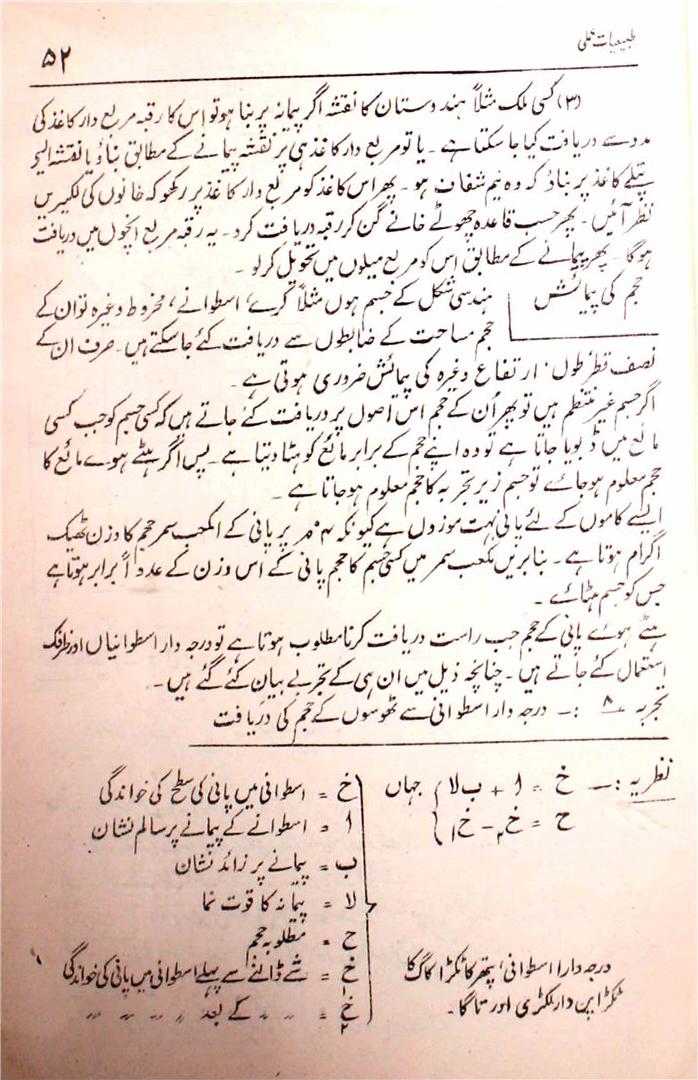 طبیعیات عملی
۵۲
(۳) کسی ملک مثلاً ہندوستان کا نقشہ اگر پیمانہ پر بنا ہو تو اس کا رقبہ مربع دار کاغذ کی
مدد سے دریافت کیا جا سکتا ہے۔ یا تو مربع دار کاغذ ہی پر نقشہ پیمانے کے مطابق بناؤ یا نقشہ ایسے
پتلے کاغذ پر بناؤ کہ وہ نیم شفاف ہو۔ پھر اس کاغذ کو مربع دار کاغذ پر رکھو کہ خانوں کی لکیریں
نظر آئیں۔ پھر حسب قاعدہ چھوٹے خانے گن کر رقبہ دریافت کرو۔ یہ رقبہ مربع انچوں میں دریافت
ہوگا۔ پھر پیمانے کے مطابق اس کو مربع میلوں میں تحویل کر لو۔
حجم کی پیمائش
ہندسی شکل کے جسم ہوں مثلاً کرے، اسطوانے، مخروط وغیرہ تو ان کے
حجم مساحت کے ضابطوں سے دریافت کئے جا سکتے ہیں۔ صرف ان کے
نصف قطر طول، ارتفاع وغیرہ کی پیمائش ضروری ہوتی ہے۔
اگر جسم غیر منتظم ہیں تو پھر اُن کے حجم اس اصول پر دریافت کئے جاتے ہیں کہ کسی جسم کو جب کسی
مائع میں ڈبویا جاتا ہے تو وہ اپنے حجم کے برابر مائع کو ہٹا دیتا ہے۔ پس اگر ہٹے ہوے مائع کا
حجم معلوم ہو جائے تو جسم زیر تجربہ کا حجم معلوم ہو جاتا ہے۔
ایسے کاموں کے لئے پانی بہت موزوں ہے کیونکہ ۴°مر پر پانی کے ا مکعب سمر حجم کا وزن ٹھیک
ا گرام ہوتا ہے۔ بنابریں مکعب سمر میں کسی جسم کا حجم پانی کے اس وزن کے عدداً برابر ہوتا ہے
جس کو جسم ہٹائے۔
ہٹے ہوئے پانی کے حجم جب راست دریافت کرنا مطلوب ہوتا ہے تو درجہ دار اسطوانیاں اور ظرفک
استعمال کئے جاتے ہیں۔ چنانچہ ذیل میں ان ہی کے تجربے بیان کئے گئے ہیں۔
تجربہ ۸ :۔ درجہ دار اسطوانی سے ٹھوسوں کے حجم کی دریافت
نظریہ :۔ خ = ا + ب لا } جہاں
ح = خ۲ - خ۱
خ = اسطوانی میں پانی کی سطح کی خواندگی
ا = اسطوانے کے پیمانے پر سالم نشان
ب = پیمانے پر زائد نشان
لا = پیمانہ کا قوت نما
ح = مطلوبہ حجم
خ۱ = شے ڈالنے سے پہلے اسطوانی میں پانی کی خواندگی
خ۲ = 〃 〃 کے بعد 〃 〃 〃 〃
درجہ دار اسطوانی، پتھر کا ٹکڑا کاگ کا
ٹکڑا پن دار لکڑی اور تاگا۔